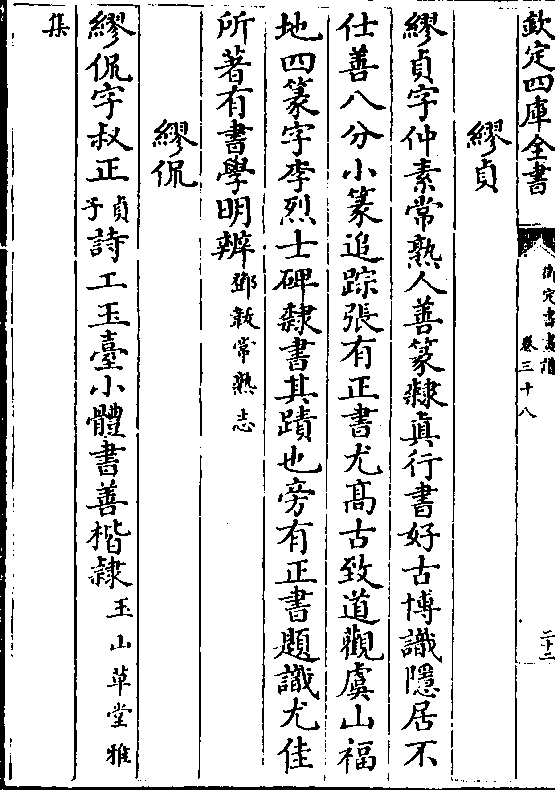 欽定四庫全書
御定書畫譜
卷三十八
二十二
繆貞
繆貞字仲素常熟人善篆隸真行書好古博識隱居不
仕善八分小篆追踪張有正書尤高古致道觀虞山福
地四篆字李烈士碑隸書其蹟也旁有正書題識尤佳
所著有書學明辨鄧韍常熟志
繆侃
繆侃字叔正貞子詩工玉臺小體書善楷隸玉山草堂雅
集